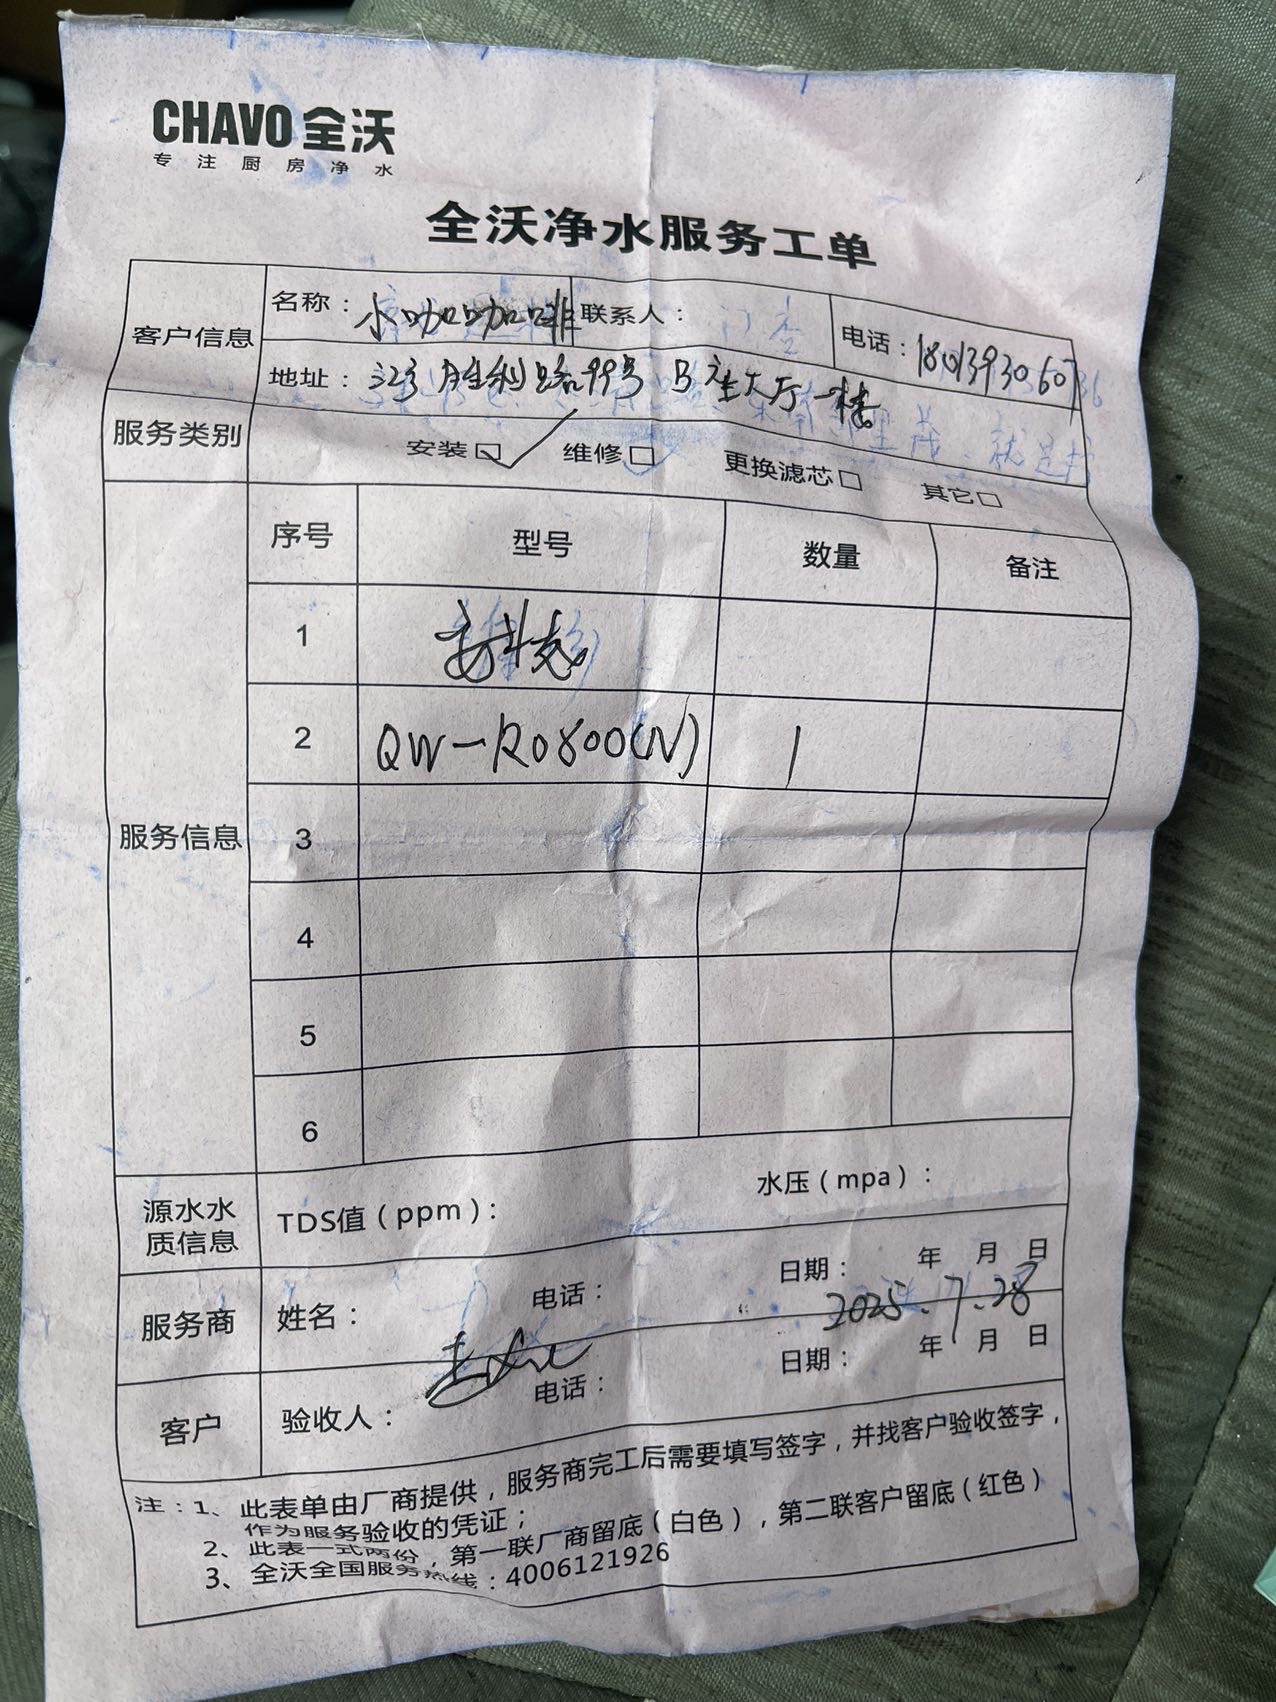 CHAVO 全沃
专注厨房净水
全沃净水服务工单
客户信息
名称：水咖咖啡
联系人：
电话：18013930607
地址：胜利路99号 B座大厅一楼
服务类别
安装☑ 维修□ 更换滤芯□ 其它□
服务信息
序号 型号 数量 备注
1
2 QW-RO800(N) 1
3
4
5
6
源水水质信息
TDS值（ppm）： 水压（mpa）：
服务商 姓名： 电话： 日期： 年 月 日
2025.7.28
客户 验收人： 电话： 日期： 年 月 日
注：1、此表单由厂商提供，服务商完工后需要填写签字，并找客户验收签字，
作为服务验收的凭证；
2、此表一式两份，第一联厂商留底（白色），第二联客户留底（红色）
3、全沃全国服务热线：4006121926